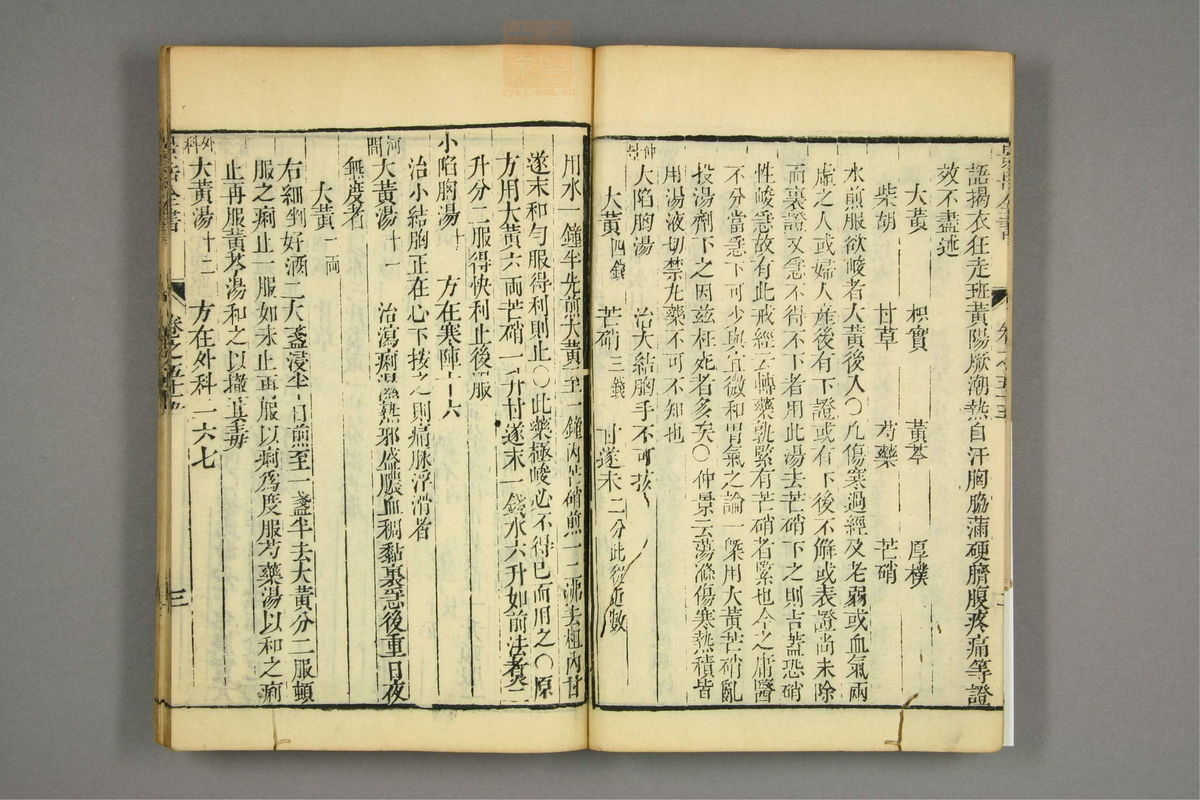 語揭衣狂走班黃陽厥潮熱自汗胸脇滿硬臍腹疼痛等證
效不盡述
大黃 枳實 黃芩 厚樸
柴胡 甘草 芍藥 芒硝
水煎服欲峻者大黃後入○凡傷寒過經及老弱或血氣兩
虛之人或婦人產後有下證或有下後不解或表證尚未除
而裏證又急不得不下者用此湯去芒硝下之則吉蓋恐硝
性峻急故有此戒經云轉藥孰緊有芒硝者緊也今之庸醫
不分當急下可少與宜微和胃氣之論一槩用大黃芒硝亂
投湯劑下之因玆枉死者多矣○仲景云蕩滌傷寒熱積皆
用湯液切禁丸藥不可不知也
仲景
大陷胸湯 治大結胸手不可按
大黃四錢 芒硝三錢 甘遂末二分此從近數
用水一鐘半先煎大黃至一鐘內芒硝煎一二沸去柤內甘
遂末和勻服得利則止○此藥極峻必不得已而用之○原
方用大黃六兩芒硝一升甘遂末一錢水六升如前法煑二
升分二服得快利止後服
小陷胸湯十 方在寒陣十六
治小結胸正在心下按之則痛脉浮滑者
河間
大黃湯十一 治瀉痢濕熱邪盛膿血稠黏裏急後重日夜
無度者
大黃一兩
右細剉好酒二大盞浸半日煎至一盞半去大黃分二服頓
服之痢止一服如未止再服以痢為度服芍藥湯以和之痢
止再服黃芩湯和之以撤其毒
外科
大黃湯十二 方在外科一六七
卷之五十五
三